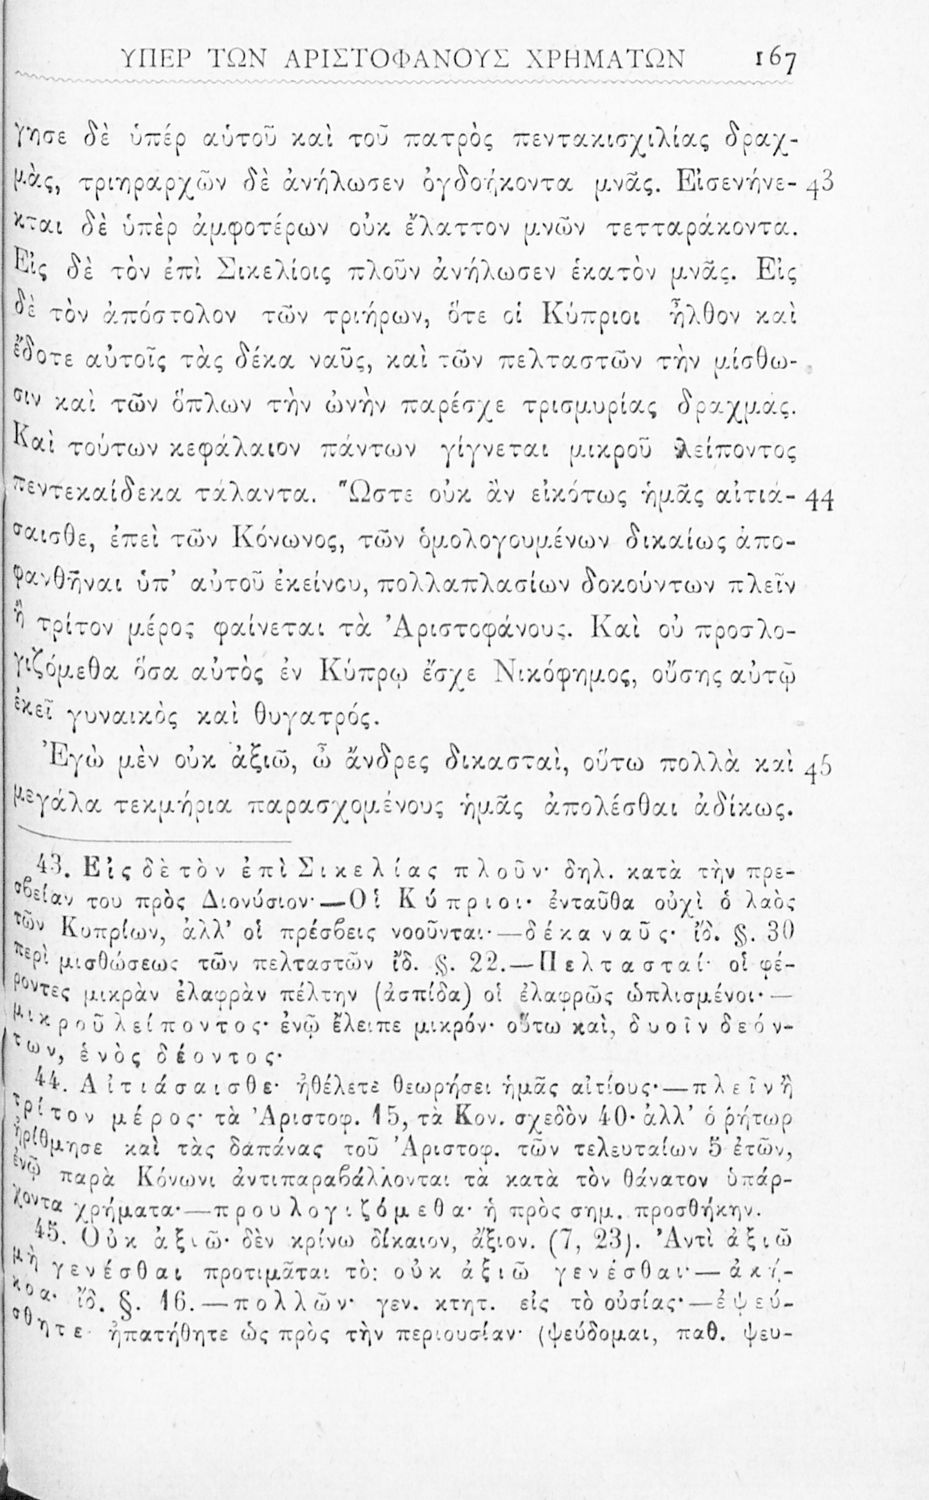 ΥΠΕΡ ΤΩΝ ΑΡΙΣΤΟΦΑΝΟΥΣ ΧΡΗΜΑΤΩΝ 167
γησε δὲ ὑπέρ αὑτοῦ καὶ τοῦ πατρὸς πεντακισχιλίας δραχ-
μὰς, τριηραρχῶν δὲ ἀνήλωσεν ὀγδοήκοντα μνᾶς. Εἰσενήνε- 43
κται δὲ ὑπὲρ ἀμφοτέρων οὐκ ἔλαττον μνῶν τετταράκοντα.
Εἰς δὲ τὸν ἐπὶ Σικελίοις πλοῦν ἀνήλωσεν ἑκατὸν μνᾶς. Εἰς
δὲ τὸν ἀπόστολον τῶν τριήρων, ὅτε οἱ Κύπριοι ἦλθον καὶ
ἔδοτε αὐτοῖς τὰς δέκα ναῦς, καὶ τῶν πελταστῶν τὴν μίσθω-
σιν καὶ τῶν ὅπλων τὴν ὠνὴν παρέσχε τρισμυρίας δραχμάς.
Καὶ τούτων κεφάλαιον πάντων γίγνεται μικροῦ λείποντος
πεντεκαίδεκα τάλαντα. Ὥστε οὐκ ἂν εἰκότως ἡμᾶς αἰτιά- 44
σαισθε, ἐπεὶ τῶν Κόνωνος, τῶν ὁμολογουμένων δικαίως ἀπο-
φανθῆναι ὑπ’ αὐτοῦ ἐκείνου, πολλαπλασίων δοκούντων πλεῖν
ἢ τρίτον μέρος φαίνεται τὰ Ἀριστοφάνους. Καὶ οὐ προσλο-
γιζόμεθα ὅσα αὐτὸς ἐν Κύπρῳ ἔσχε Νικόφημος, οὔσης αὐτῷ
ἐκεῖ γυναικὸς καὶ θυγατρός.
Ἐγὼ μὲν οὐκ ἀξιῶ, ὦ ἄνδρες δικασταὶ, οὕτω πολλὰ καὶ 45
μεγάλα τεκμήρια παρασχομένους ἡμᾶς ἀπολέσθαι ἀδίκως.
43. Εἰς δὲ τὸν ἐπὶ Σικελίας πλοῦν· δηλ. κατὰ τὴν πρε-
σβείαν του πρὸς Διονύσιον·—Οἱ Κύπριοι· ἐνταῦθα οὐχὶ ὁ λαὸς
τῶν Κυπρίων, ἀλλ’ οἱ πρέσβεις νοοῦνται·—δέκα ναῦς· ἴδ. §. 30
περὶ μισθώσεως τῶν πελταστῶν ἴδ. §. 22.—Πελτασταί· οἱ φέ-
ροντες μικρὰν ἐλαφρὰν πέλτην (ἀσπίδα) οἱ ἐλαφρῶς ὡπλισμένοι·—
μικροῦ λείποντος· ἐνῷ ἔλειπε μικρόν· οὕτω καὶ, δυοῖν δεόν-
των, ἑνὸς δέοντος·
44. Αἰτιάσαισθε· ἠθέλετε θεωρήσει ἡμᾶς αἰτίους·—πλεῖν ἢ
τρίτον μέρος· τὰ Ἀριστοφ. 15, τὰ Κον. σχεδὸν 40· ἀλλ’ ὁ ῥήτωρ
ἠρίθμησε καὶ τὰς δαπάνας τοῦ Ἀριστοφ. τῶν τελευταίων 5 ἐτῶν,
ἐνῷ παρὰ Κόνωνι ἀντιπαραβάλλονται τὰ κατὰ τὸν θάνατον ὑπάρ-
χοντα χρήματα·—προυλογιζόμεθα· ἡ πρὸς σημ. προσθήκην.
45. Οὐκ ἀξιῶ· δὲν κρίνω δίκαιον, ἄξιον. (7, 23). Ἀντὶ ἀξιῶ
μὴ γενέσθαι προτιμᾶται τὸ: οὐκ ἀξιῶ γενέσθαι·—ἀκή-
κοα· ἴδ. §. 16.—πολλῶν· γεν. κτητ. εἰς τὸ οὐσίας·—ἐψεύ-
σθητε ἠπατήθητε ὡς πρὸς τὴν περιουσίαν· (ψεύδομαι, παθ. ψευ-